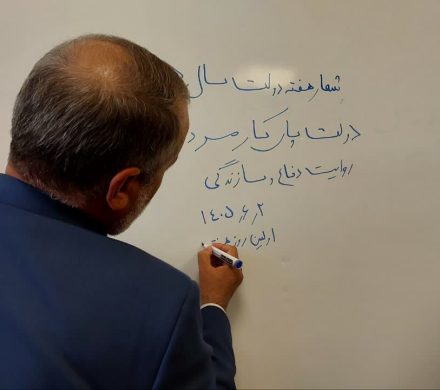 شعار هفته دولت سال
دولت پای کار مرد
روایت دفاع و سازندگی
۱۴۰۵/۶/۲
اولین روز هفته